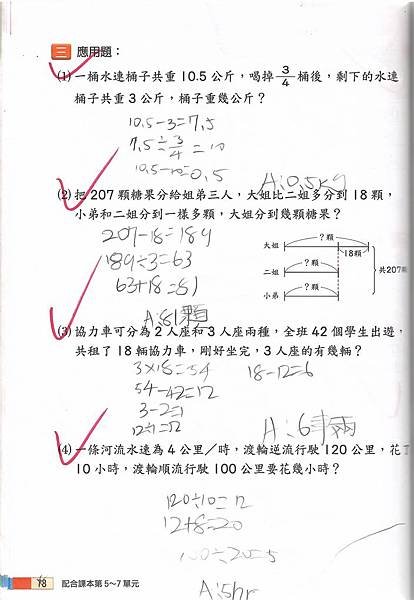 三 應用題：
(1) 一桶水連桶子共重 10.5 公斤，喝掉 3/4 桶後，剩下的水連
桶子共重 3 公斤，桶子重幾公斤？
10.5-3=7.5
7.5÷3/4=10
10.5-10=0.5
A:0.5kg
(2) 把 207 顆糖果分給姐弟三人，大姐比二姐多分到 18 顆，
小弟和二姐分到一樣多顆，大姐分到幾顆糖果？
207-18=189
189÷3=63
63+18=81
A:81顆
大姐 ？顆
18顆
二姐 ？顆
共207
小弟 ？顆
(3) 協力車可分為 2 人座和 3 人座兩種，全班 42 個學生出遊，
共租了 18 輛協力車，剛好坐完，3 人座的有幾輛？
3×18=54 18-12=6
54-42=12
3-2=1
12÷1=12
A:6輛
(4) 一條河流水速為 4 公里／時，渡輪逆流行駛 120 公里，花了
10 小時，渡輪順流行駛 100 公里要花幾小時？
120÷10=12
12+8=20
100÷20=5
A:5hr
78 配合課本第 5～7 單元